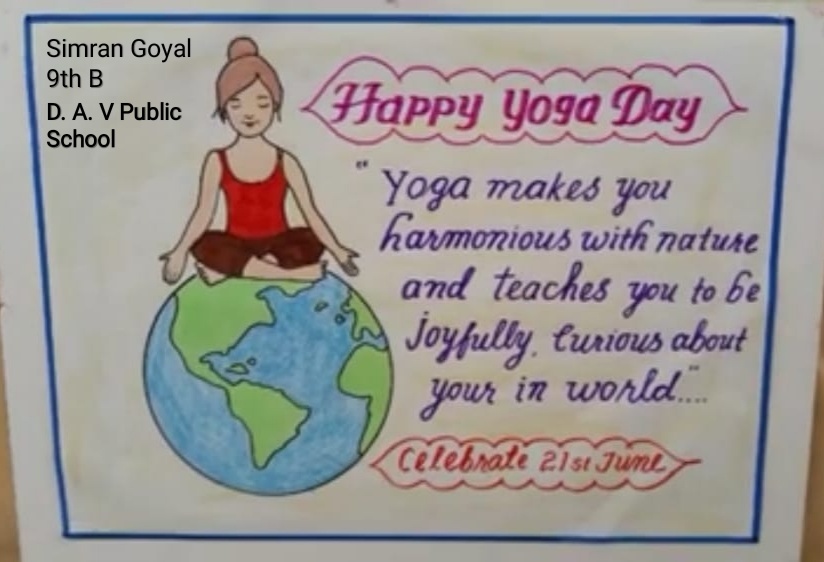 Simran Goyal
9th B
D. A. V Public
School
Happy Yoga Day
" Yoga makes you
harmonious with nature
and teaches you to be
Joyfully, Curious about
your in world...."
Celebrate 21st June